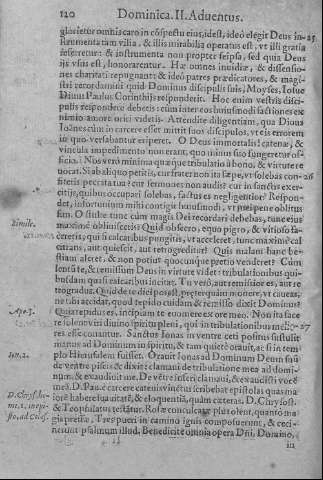 120 Dominica. II. Aduentus.
glorietur omnis caro in cōspectu eius, idest, ideò elegit Deus in- 25
strumenta tam vilia, & illis mirabilia operatus est, vt illi gratia
referretur: & instrumenta non propter seipsa, sed quia Deus
ijs vsus est, honorarentur. Hæ omnes inuidiæ, & dissensio-
nes charitati repugnant: & ideò patres prædicatores, & magi-
stri recordamini quid Dominus discipulis suis, Moyses, Iosue
Diuus Paulus Corinthijs responderit. Hoc enim vestris disci-
pulis respondere debetis: eum inter eos huiusmodi
nimio amore orici videtis. Attendite diligentiam, qua Diuus
Ioannes cùm in carcere esset mittit suos discipulos, vt eis errorem
in quo versabantur eriperet. O Deus immortalis! catenæ, &
vincula impedimenti non erant, quo minus suo fungeretur of-
ficio. Nos verò minima quæque tribulatio à bono, & virtute re
uocat. Si ab aliquo petitis, cur frater non ita sæpe, vt solebas con- 26
fiteris peccata tua? cur sermones non audis? cur in sanctis exer-
citijs, quibus occupari solebas, factus es negligentior? Respon-
det, infortunium mihi contigit huiusmodi, vt penè me oblitus
Simile. sim. O stulte tunc cùm magis Dei recordari debebas, tunc eius
maximè obliuisceris? Quid obsecro, equo pigro, & vitioso fa-
ceretis, qui si calcaribus pungitis, vt acceleret, tunc maximè cal
citrans, aut quiescit, aut retrogreditur? Quis malam hanc be-
stiam aleret, & non potius quocunque pretio venderet? Cùm
lentè te, & remissum Deus in virtute videt: tribulationibus qui-
busdam quasi calcaribus incitat. Tu verò, aut remissior es, aut re
trogradus. Quid de te dici potest, præterquàm monere, vt caueas,
ne tibi accidat, quod tepido cuidam & remisso dixit Dominus?
Apo.3. Quia tepidus es, incipiam te euomere ex ore meo. Non ita face
re solent viri diuino spiritu pleni, qui in tribulationibus melio- 27
res esse conantur. Sanctus Ionas in ventre ceti positus sustulit
manus ad Dominum in spiritu, & tam quietè orauit, ac si in tem
Ion.2. plo Hierusalem fuisset. Orauit Ionas ad Dominum Deum suū
de ventre piscis: & dixit: clamaui de tribulatione mea ad domi-
num, & exaudiuit me. De vētre inferi clamaui, & exaudisti vocē
D. Chrysf. ho- meā. D. Paulꝰ carcere cateris vinctus scribebat epistolas qua ma-
iorē habere suauitatē, & eloquentiā, quàm cæteras. D. Chrysost.
& Teophilatus testātur. Rosæ conculcatæ plus olent, quanto ma
gis pressæ. Tres pueri in camino ignis composuerunt, & ceci-
nerunt psalmum illud. Benedicite omnia opera Dñi, Domino,
in